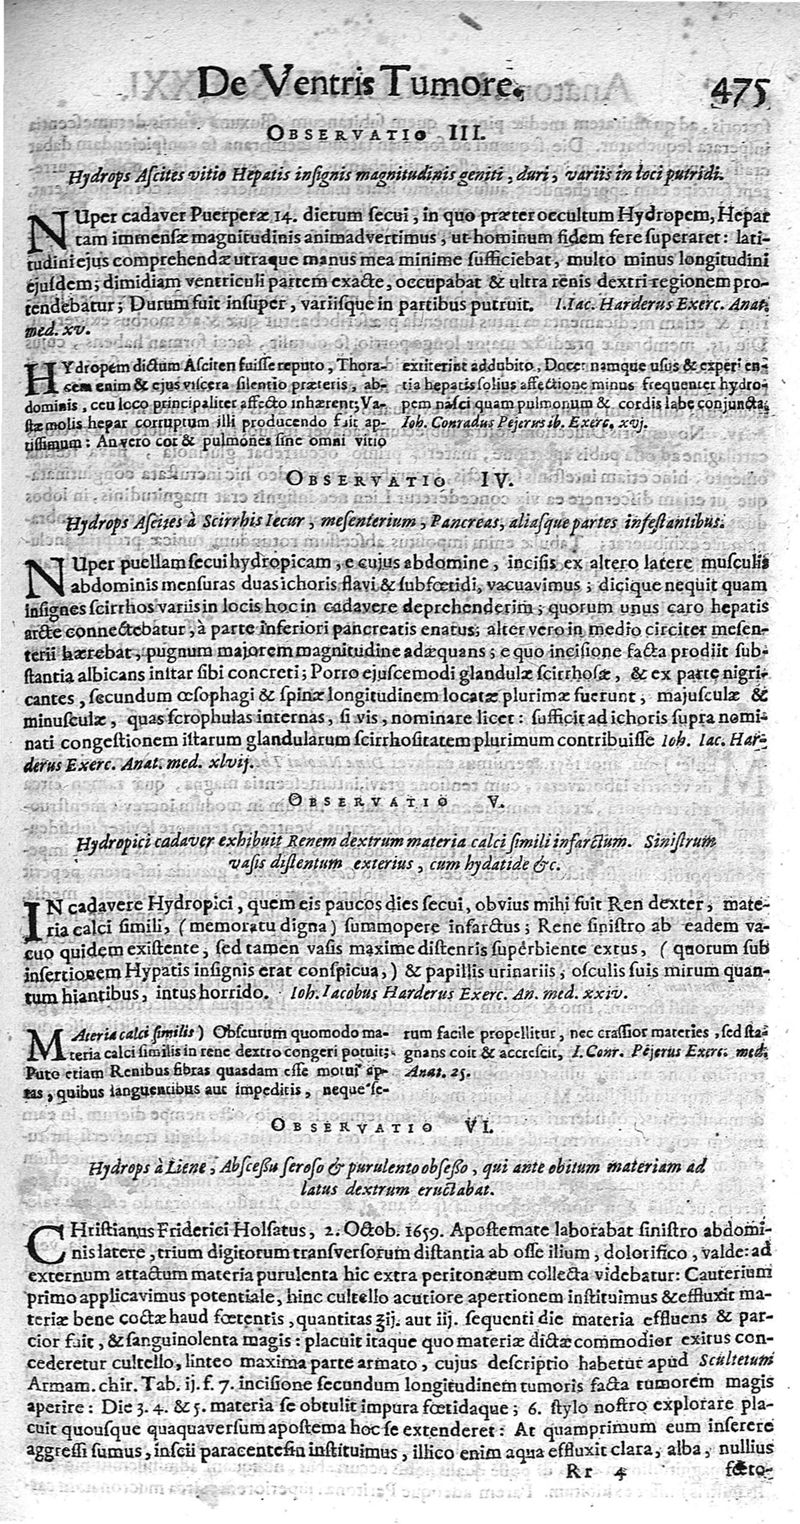 De Ventris Tumore. 475
OBSERVATIO III.
Hydrops Aſcites vitio Hepatis inſignis magnitudinis geniti, duri, variis in loci putridi.
NUper cadaver Puerperæ 14. dierum ſecui, in quo præter occultum Hydropem, Hepar
tam immenſæ magnitudinis animadvertimus, ut hominum fidem fere ſuperaret: lati-
tudini ejus comprehendæ utraque manus mea minime ſufficiebat, multo minus longitudini
ejuſdem; dimidiam ventriculi partem exacte, occupabat & ultra renis dextri regionem pro-
tendebatur; Durum fuit inſuper, variiſque in partibus putruit. I. Iac. Harderus Exerc. Anat.
med. xv.
HYdropem dictum Aſciten fuiſſe reputo, Thora-
cem enim & ejus viſcera ſilentio præteris, ab-
dominis, ceu loco principaliter affecto inhærent; Va-
ſtæ molis hepar corruptum illi producendo fuit ap-
tiſſimum: An vero cor & pulmones ſine omni vitio
extiterint addubito, Docet namque uſus & experien-
tia hepatis ſolius affectione minus frequenter hydro-
pem naſci quam pulmonum & cordis labe conjuncta.
Ioh. Conradus Pejerus ib. Exerc. xvj.
OBSERVATIO IV.
Hydrops Aſcites à Scirrhis Iecur, meſenterium, Pancreas, aliaſque partes infeſtantibus.
NUper puellam ſecui hydropicam, e cujus abdomine, inciſis ex altero latere muſculis
abdominis menſuras duas ichoris flavi & ſubfœtidi, vacuavimus; dicique nequit quam
inſignes ſcirrhos variis in locis hoc in cadavere deprehenderim; quorum unus caro hepatis
arcte connectebatur, à parte inferiori pancreatis enatus; alter vero in medio circiter meſen-
terii hærebat, pugnum majorem magnitudine adæquans; e quo inciſione facta prodiit ſub-
ſtantia albicans inſtar ſibi concreti; Porro ejuſcemodi glandulæ ſcirrhoſæ, & ex parte nigri-
cantes, ſecundum œſophagi & ſpinæ longitudinem locatæ plurimæ fuerunt, majuſculæ &
minuſculæ, quas ſcrophulas internas, ſi vis, nominare licet: ſufficit ad ichoris ſupra nomi-
nati congeſtionem iſtarum glandularum ſcirrhoſitatem plurimum contribuiſſe Ioh. Iac. Har-
derus Exerc. Anat. med. xlvij.
OBSERVATIO V.
Hydropici cadaver exhibuit Renem dextrum materia calci ſimili infarctum. Siniſtrum
vaſis diſtentum exterius, cum hydatide &c.
IN cadavere Hydropici, quem eis paucos dies ſecui, obvius mihi fuit Ren dexter, mate-
ria calci ſimili, (memoratu digna) ſummopere infarctus; Rene ſiniſtro ab eadem va-
cuo quidem exiſtente, ſed tamen vaſis maxime diſtentis ſuperbiente extus, (quorum ſub
inſertionem Hypatis inſignis erat conſpicua,) & papillis urinariis, oſculis ſuis mirum quan-
tum hiantibus, intus horrido. Ioh. Iacobus Harderus Exerc. An. med. xxiv.
MAteria calci ſimilis) Obſcurum quomodo ma-
teria calci ſimilis in rene dextro congeri potuit;
Puto etiam Renibus fibras quasdam eſſe motuſ ap-
tas, quibus languentibus aut impeditis, neque ſe-
rum facile propellitur, nec craſſior materies, ſed ſta-
gnans coit & accreſcit, I. Conr. Pejerus Exerc. med.
Anat. 25.
OBSERVATIO VI.
Hydrops à Liene, Abſceſſu ſeroſo & purulento obſeſſo, qui ante obitum materiam ad
latus dextrum eructabat.
CHriſtianus Friderici Holſatus, 2. Octob. 1659. Apoſtemate laborabat ſiniſtro abdomi-
nis latere, trium digitorum transverſorum diſtantia ab oſſe ilium, dolorifico, valde: ad
externum attactum materia purulenta hic extra peritonæum collecta videbatur: Cauterium
primo applicavimus potentiale, hinc cultello acutiore apertionem inſtituimus & effluxit ma-
teriæ bene coctæ haud fœtentis, quantitas ℥ij. aut iij. ſequenti die materia effluens & par-
cior fuit, & ſanguinolenta magis: placuit itaque quo materiæ dictæ commodior exitus con-
cederetur cultello, linteo maxima parte armato, cujus deſcriptio habetur apud Scultetum
Armam. chir. Tab. ij. f. 7. inciſione ſecundum longitudinem tumoris facta tumorem magis
aperire: Die 3. 4. & 5. materia ſe obtulit impura fœtidaque; 6. ſtylo noſtro explorare pla-
cuit quouſque quaquaverſum apoſtema hoc ſe extenderet: At quamprimum eum inſerere
aggreſſi ſumus, inſcii paracenteſin inſtituimus, illico enim aqua effluxit clara, alba, nullius
Rr 4 fœto-